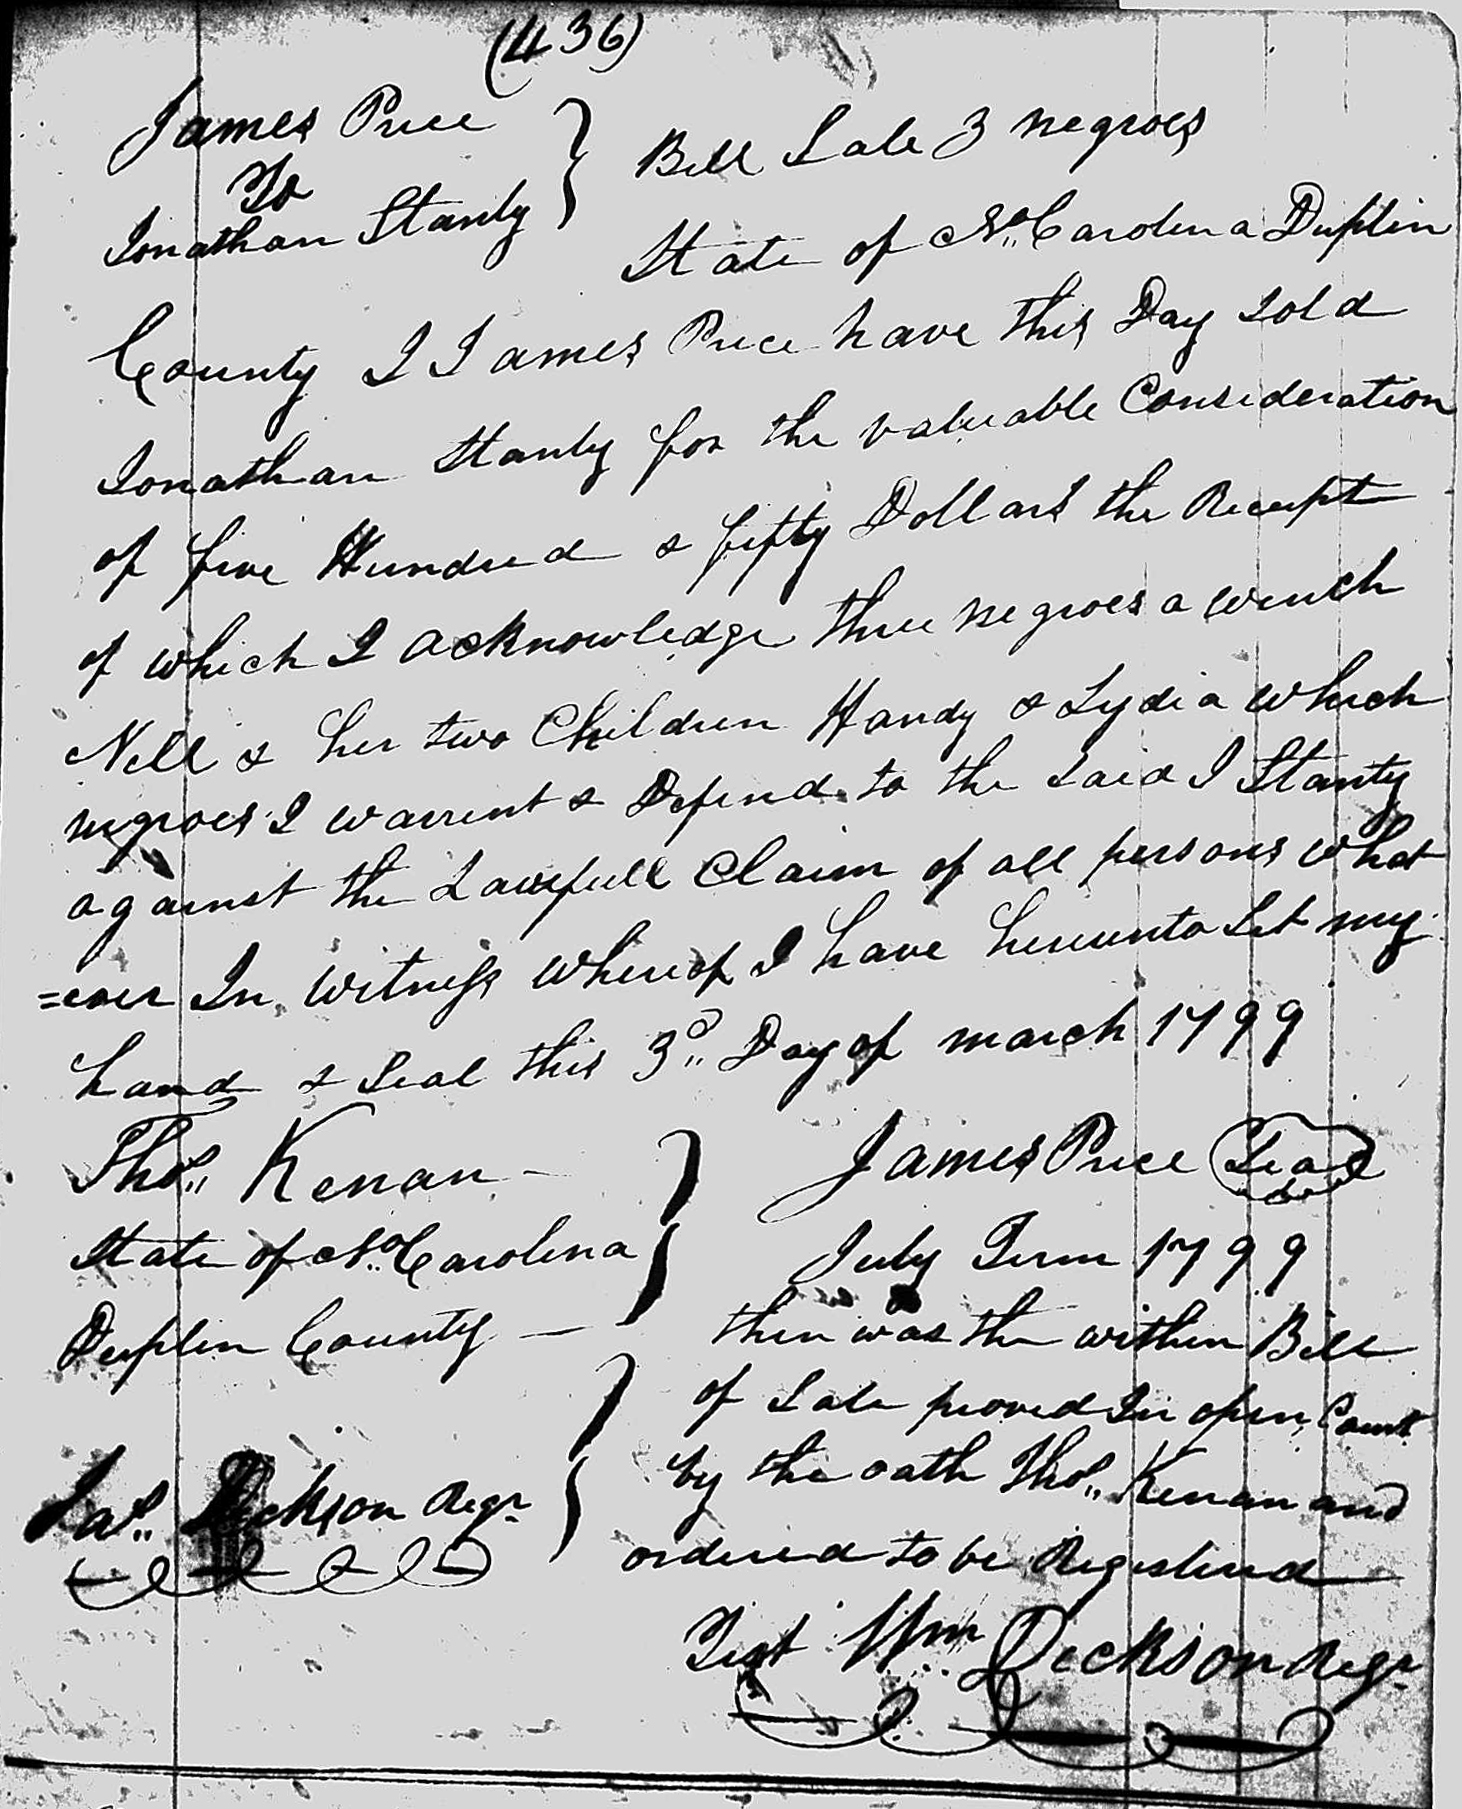 (436)
James Price
To
Jonathan Stanly
Bill Sale 3 negroes
State of No. Carolina Duplin
County I James Price have this Day Sold
Jonathan Stanly for the valuable Consideration
of five Hundred & fifty Dollars the Receipt
of which I acknowledge three negroes a wench
Nell & her two Children Handy & Lydia which
negroes I warrent & Defend to the Said J Stanly
against the Lawfull Claim of all persons what
=ever In witness whereof I have hereunto Set my
hand & Seal this 3d. Day of march 1799
Thos. Kenan
James Price Seal
State of No. Carolina
Duplin County
July Term 1799
then was the within Bill
of Sale proved In open Court
by the oath Thos. Kenan and
ordered to be Registered
Jas. Dickson Regr
Test Wm Dickson Regr